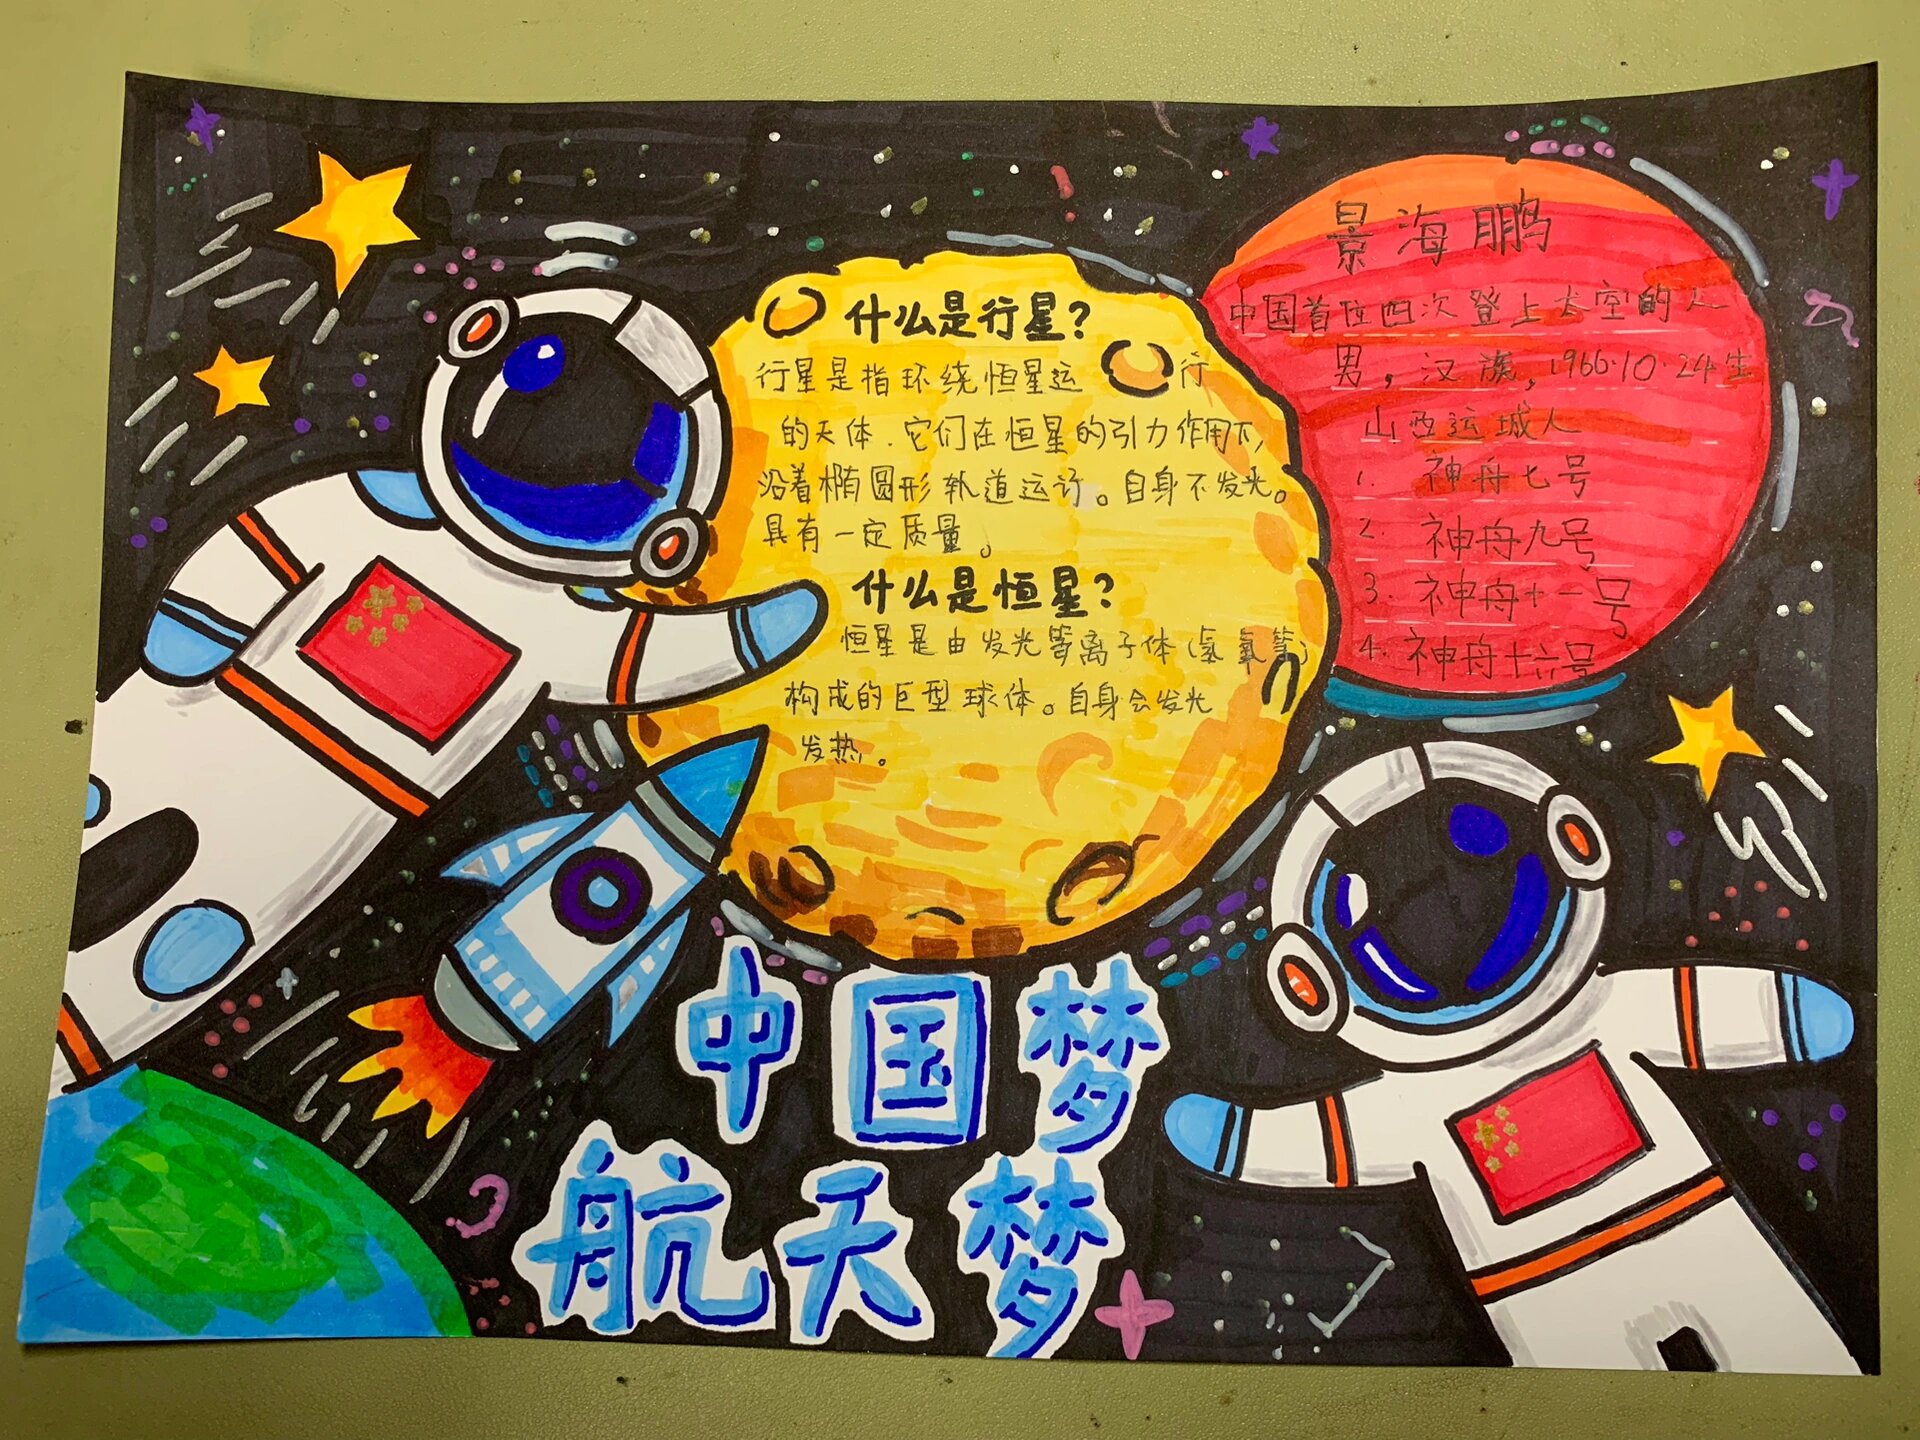 什么是行星?
行星是指环绕恒星运行
的天体.它们在恒星的引力作用下,
沿着椭圆形轨道运行。自身不发光。
具有一定质量。
什么是恒星?
恒星是由发光等离子体(氢氧等)
构成的巨型球体。自身会发光
发热。
景海鹏
中国首位四次登上太空的人
男,汉族,1966.10.24生
山西运城人
1. 神舟七号
2. 神舟九号
3. 神舟十一号
4. 神舟十六号
中国梦
航天梦